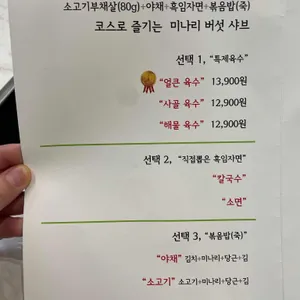 소고기부채살(80g)+야채+흑임자면+볶음밥(죽)
코스로 즐기는 미나리 버섯 샤브
선택 1, "특제육수"
"얼큰 육수" 13,900원
"사골 육수" 12,900원
"해물 육수" 12,900원
선택 2, "직접뽑은 흑임자면"
"칼국수"
"소면"
선택 3, "볶음밥(죽)"
"야채" 김치+미나리+당근+김
"소고기" 소고기+미나리+당근+김